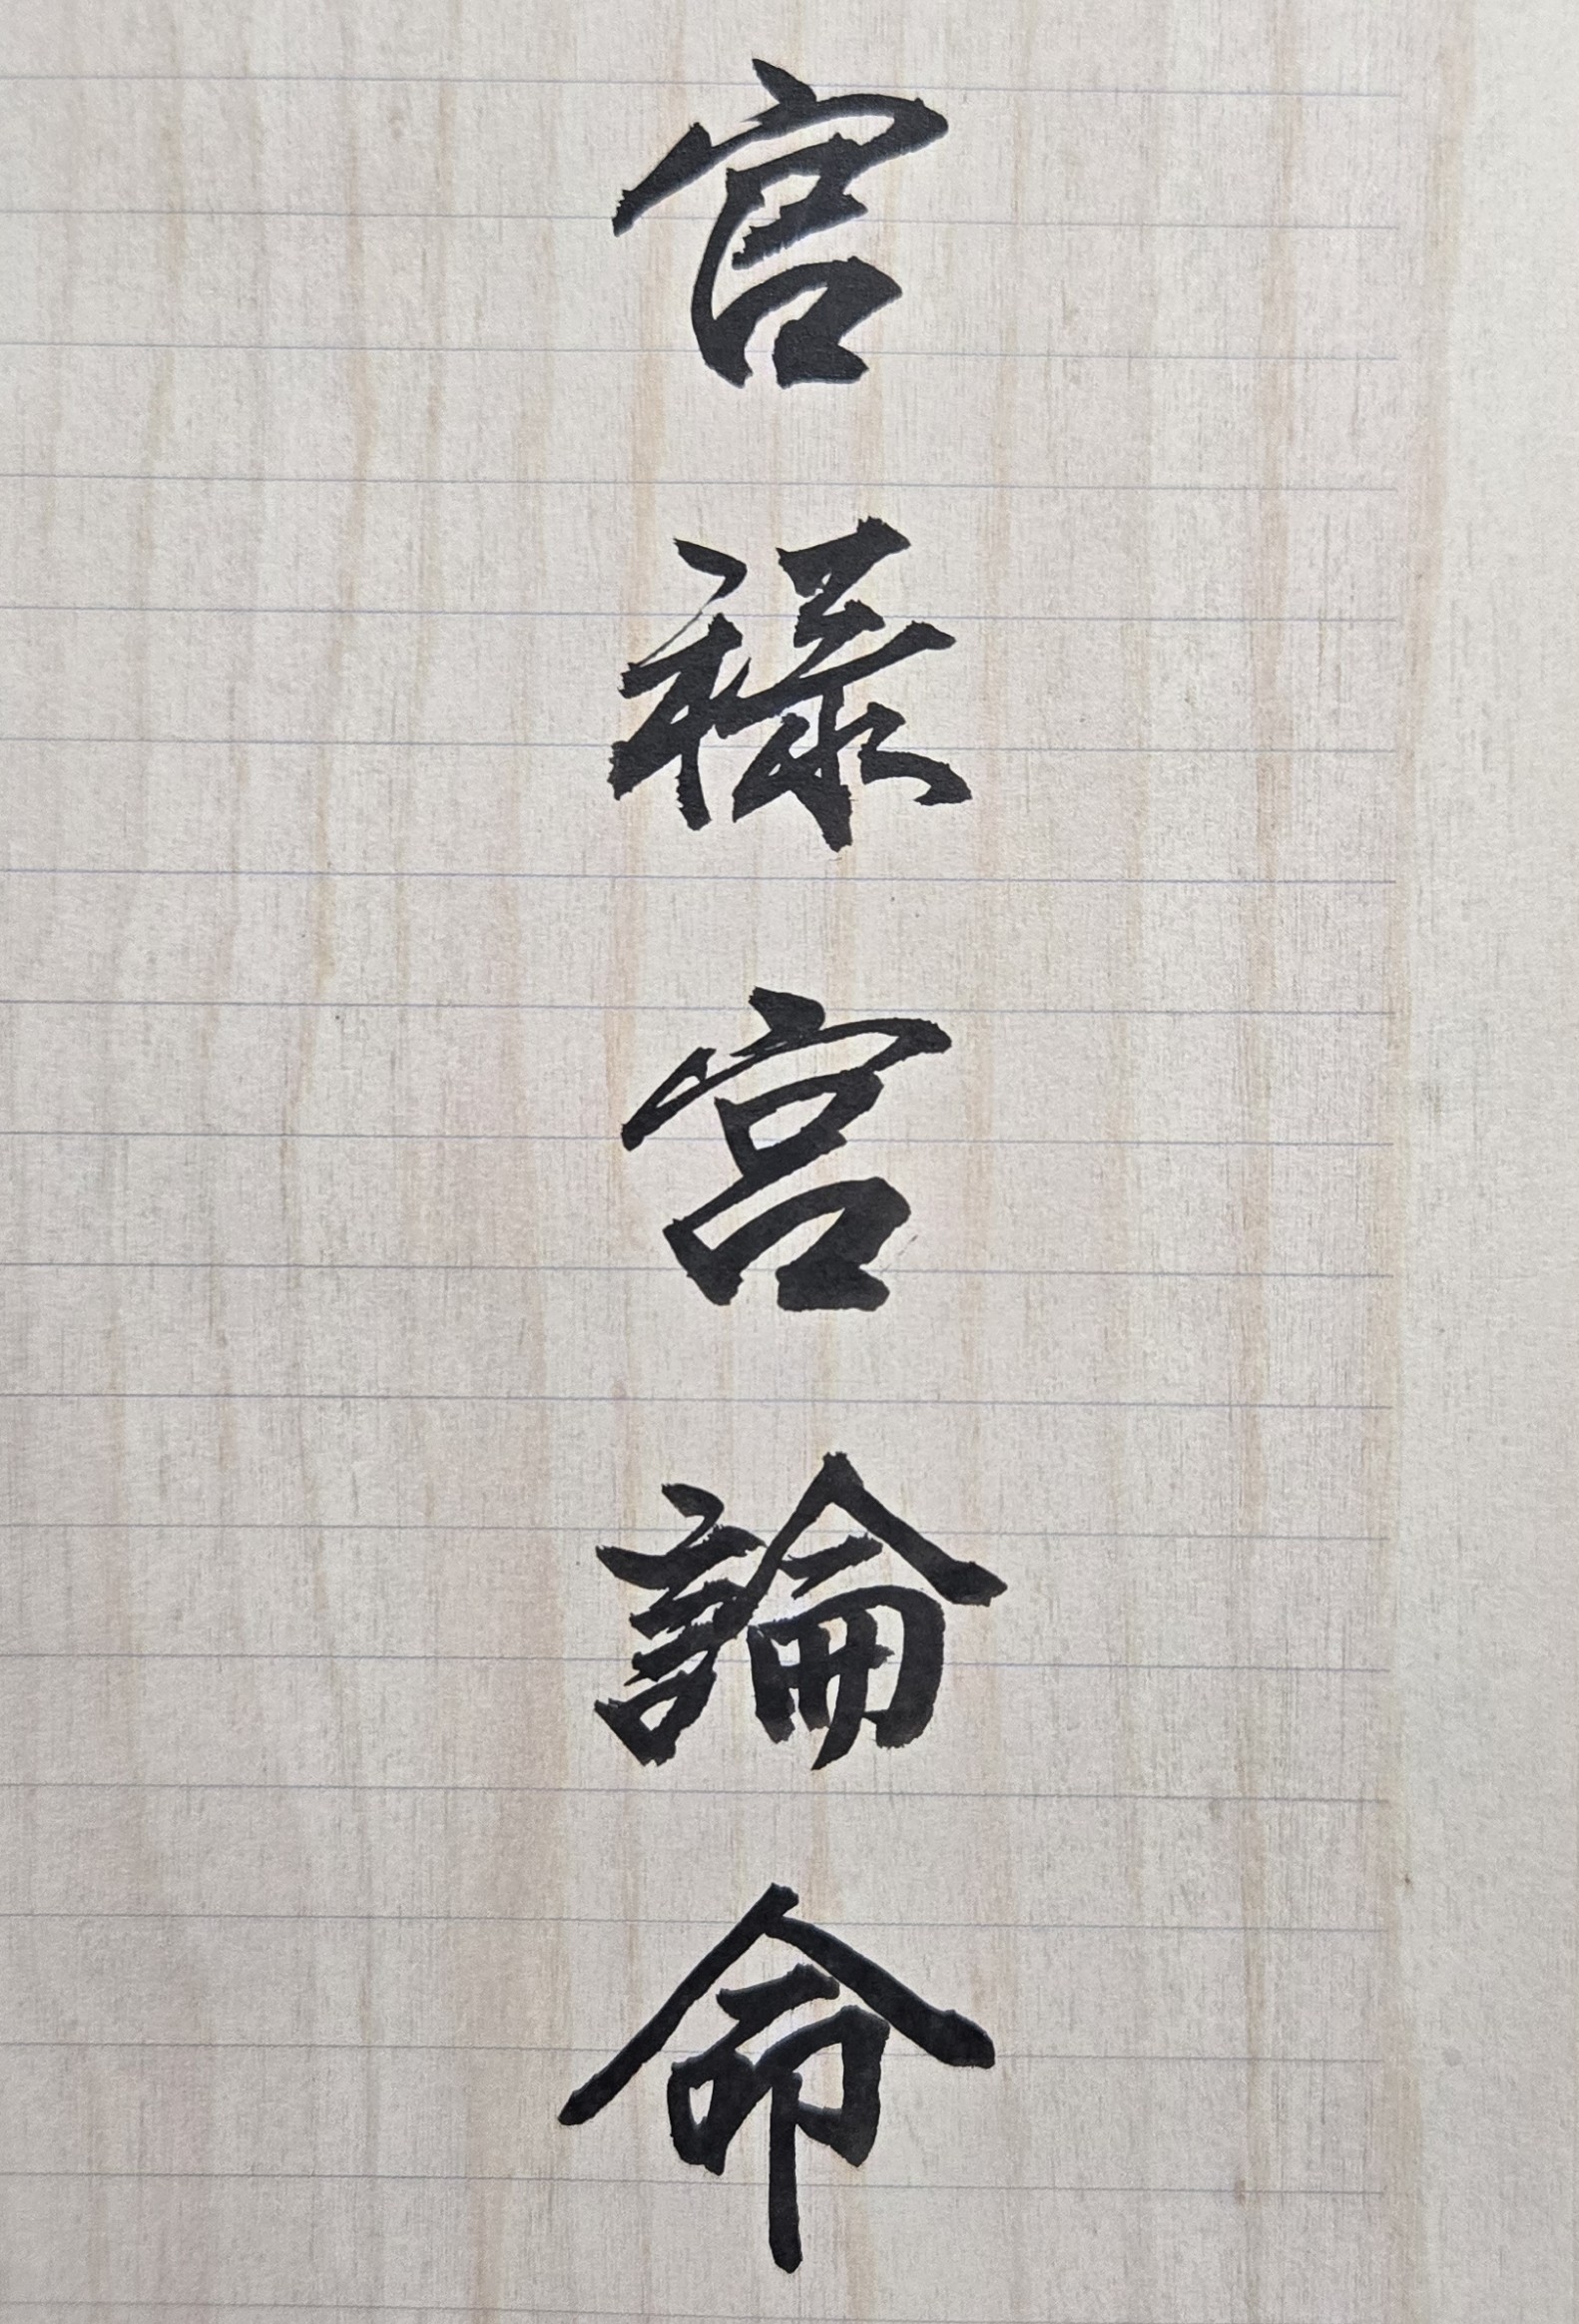 官祿宮論命